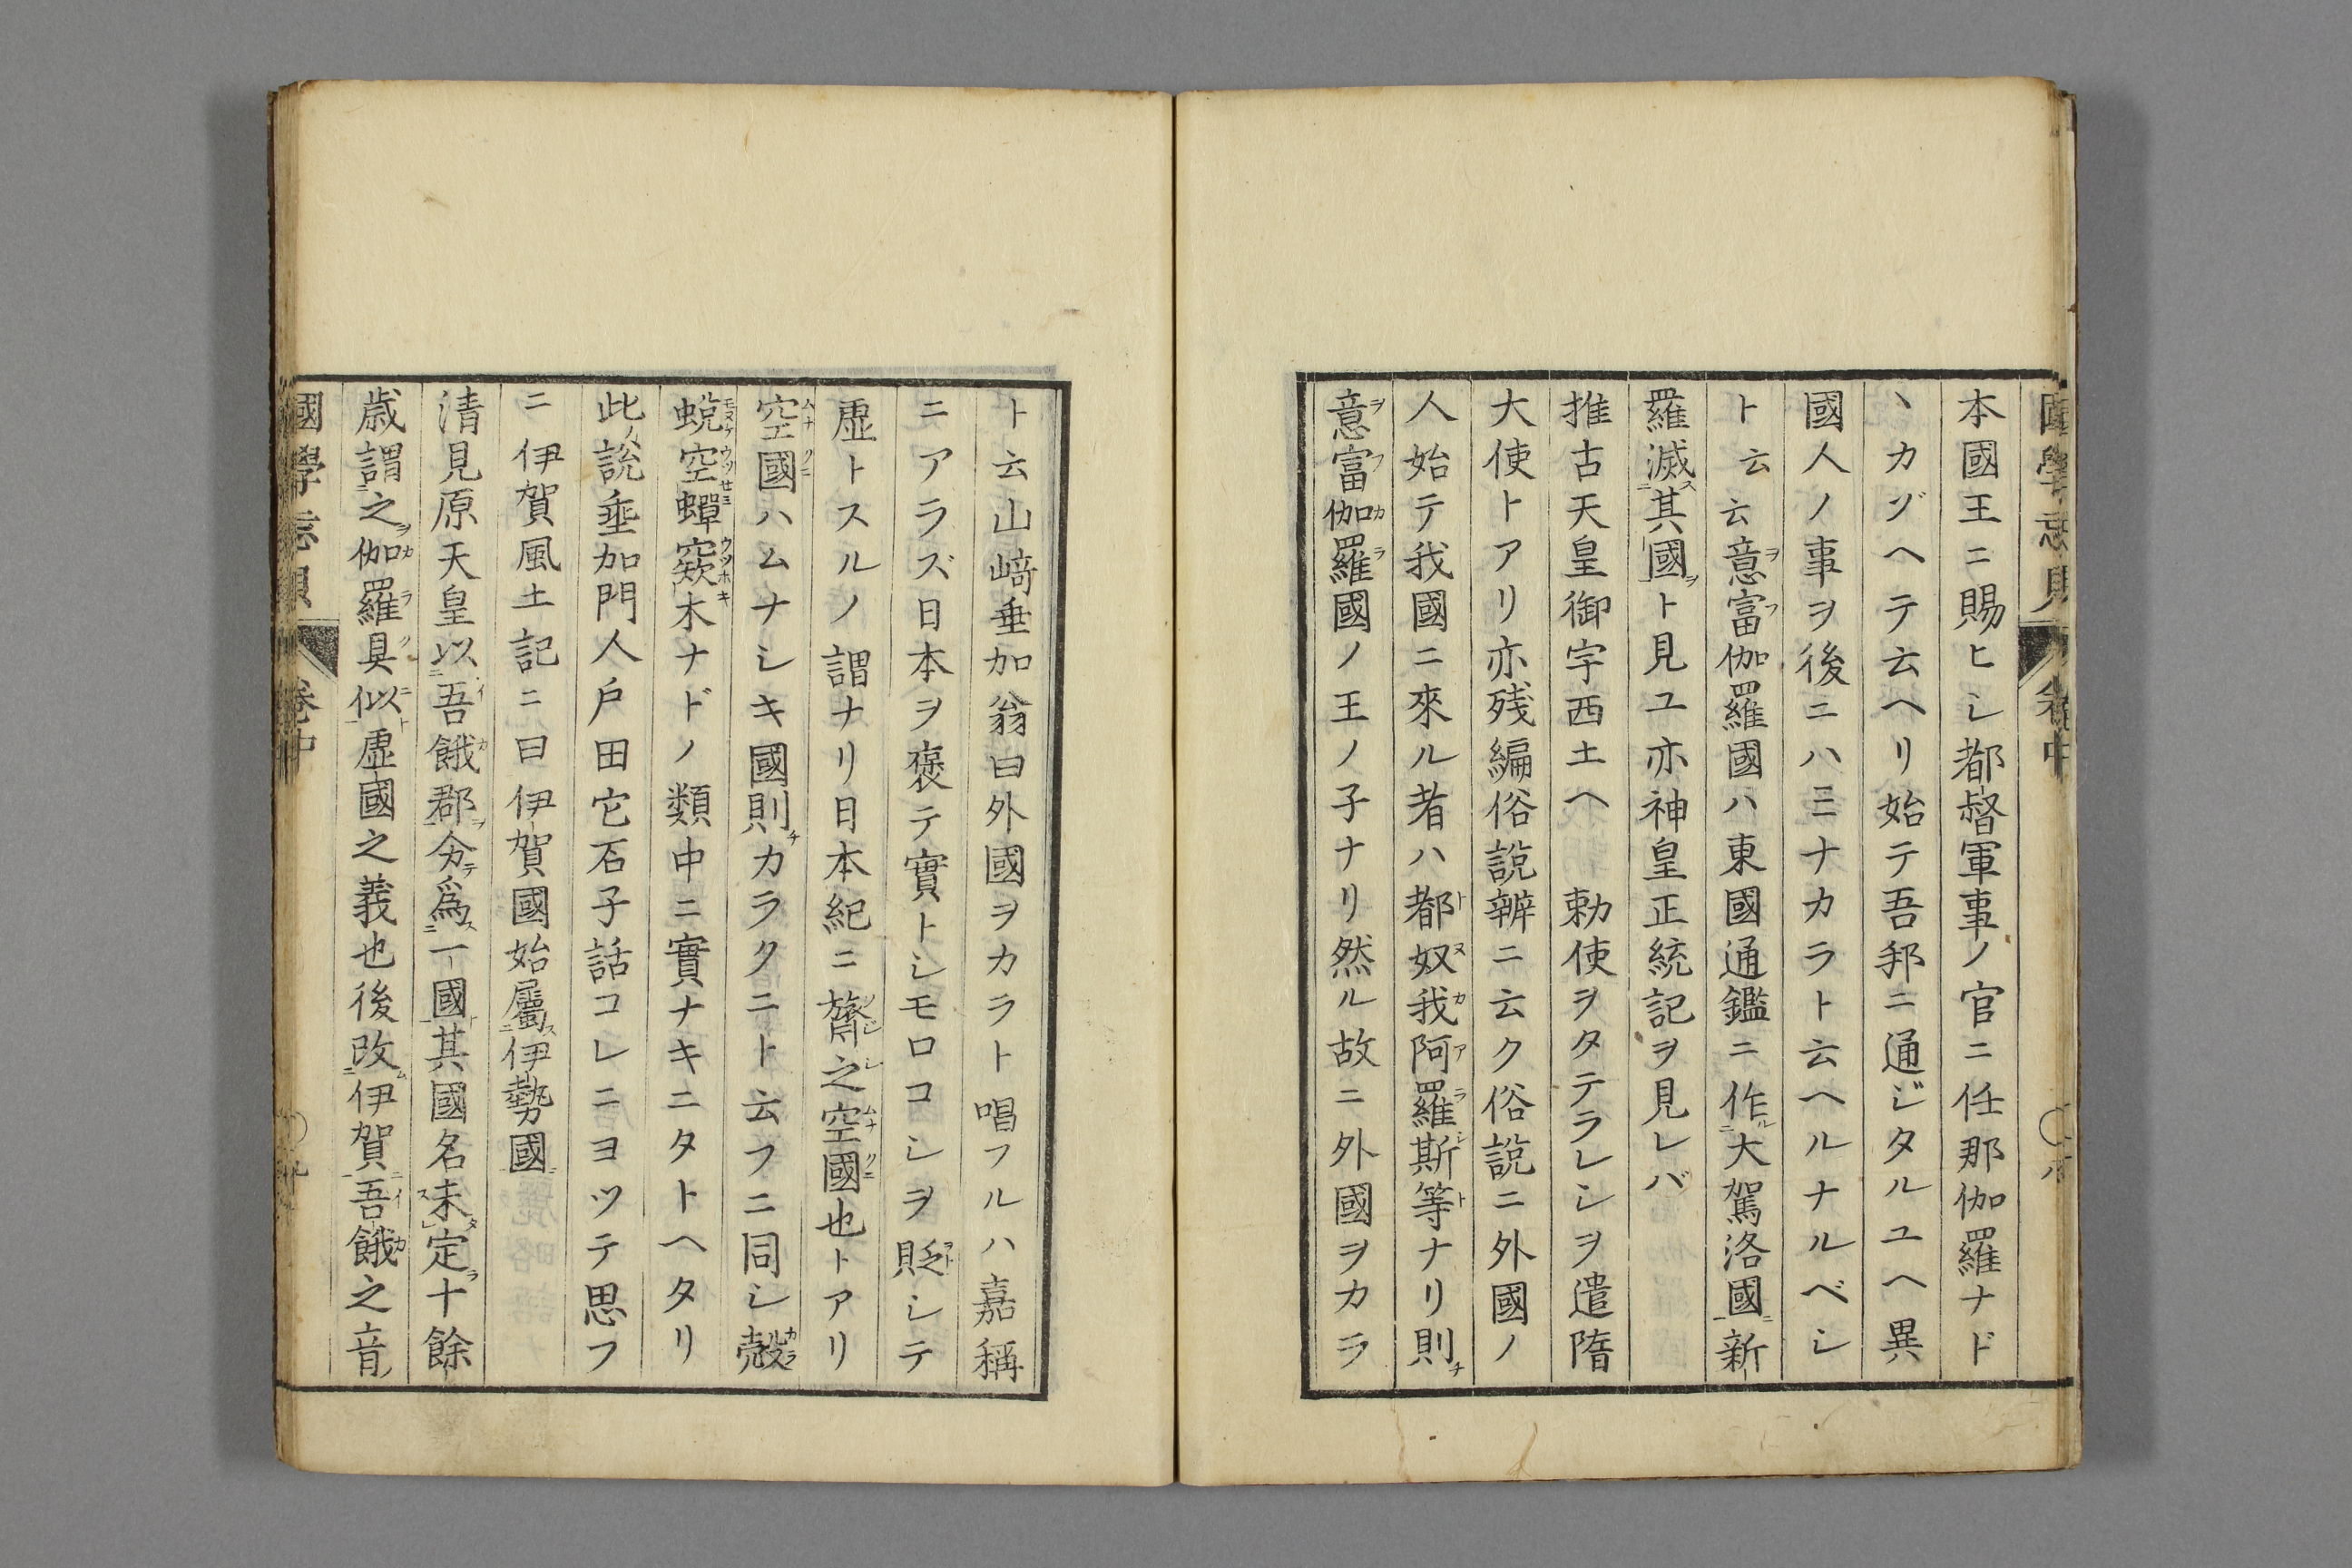 本國王ニ賜ヒシ都督軍事ノ官ニ任那伽羅ナド
ヽカゾヘテ云ヘリ始テ吾邦ニ通ジタルユヘ異
國人ノ事ヲ後ニハミナカラト云ヘルナルベシ
ト云云意富伽羅國ハ東國通鑑ニ作大駕洛國新
羅滅其國ト見ユ亦神皇正統記ヲ見レバ
推古天皇御宇西土ヘ 勅使ヲタテラレシヲ遣隋
大使トアリ亦残編俗說辨ニ云ク俗說ニ外國ノ
人始テ我國ニ來ル者ハ都奴我阿羅斯等ナリ則
意富伽羅國ノ王ノ子ナリ然ル故ニ外國ヲカラ
ト云山﨑垂加翁曰外國ヲカラト唱フルハ嘉稱
ニアラズ日本ヲ褒テ實トシモロコシヲ貶シテ
虛トスルノ謂ナリ日本紀ニ膂之空國也トアリ
空國ハムナシキ國則カラクニト云フニ同シ殻
蛻空蟬窾木ナドノ類中ニ實ナキニタトヘタリ
此說垂加門人戶田它石子話コレニヨツテ思フ
ニ伊賀風土記ニ曰伊賀國始屬伊勢國
清見原天皇以吾餓郡分爲一國其國名未定十餘
歲謂之伽羅具似虛國之義也後改伊賀吾餓之音
國學忘貝 卷中